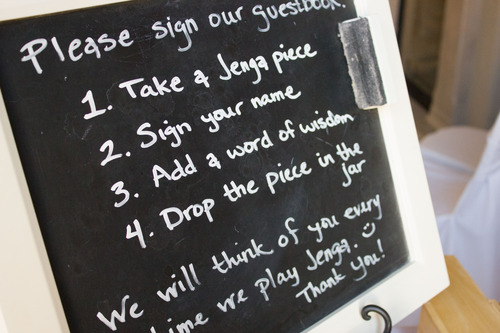 Please sign our guestbook.
1. Take a Jenga piece
2. Sign your name
3. Add a word of wisdom
4. Drop the piece in the
jar
We will think of you every
time we play Jenga. :)
Thank you!